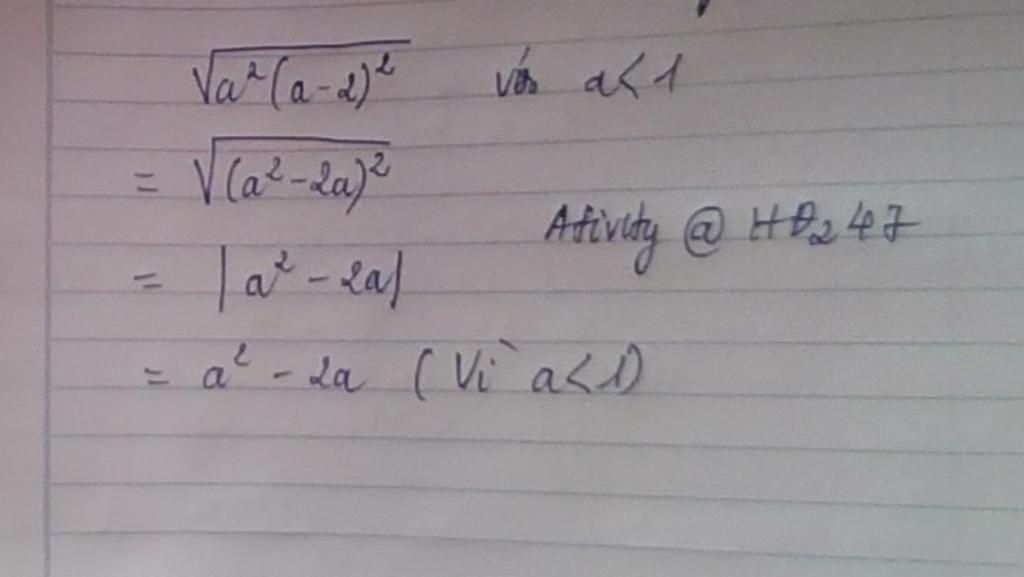 √(a²(a-2)²) với a<1
= √((a²-2a)²)
Afivity @ HĐ247
= |a² - 2a|
= a² - 2a (Vì a<1)